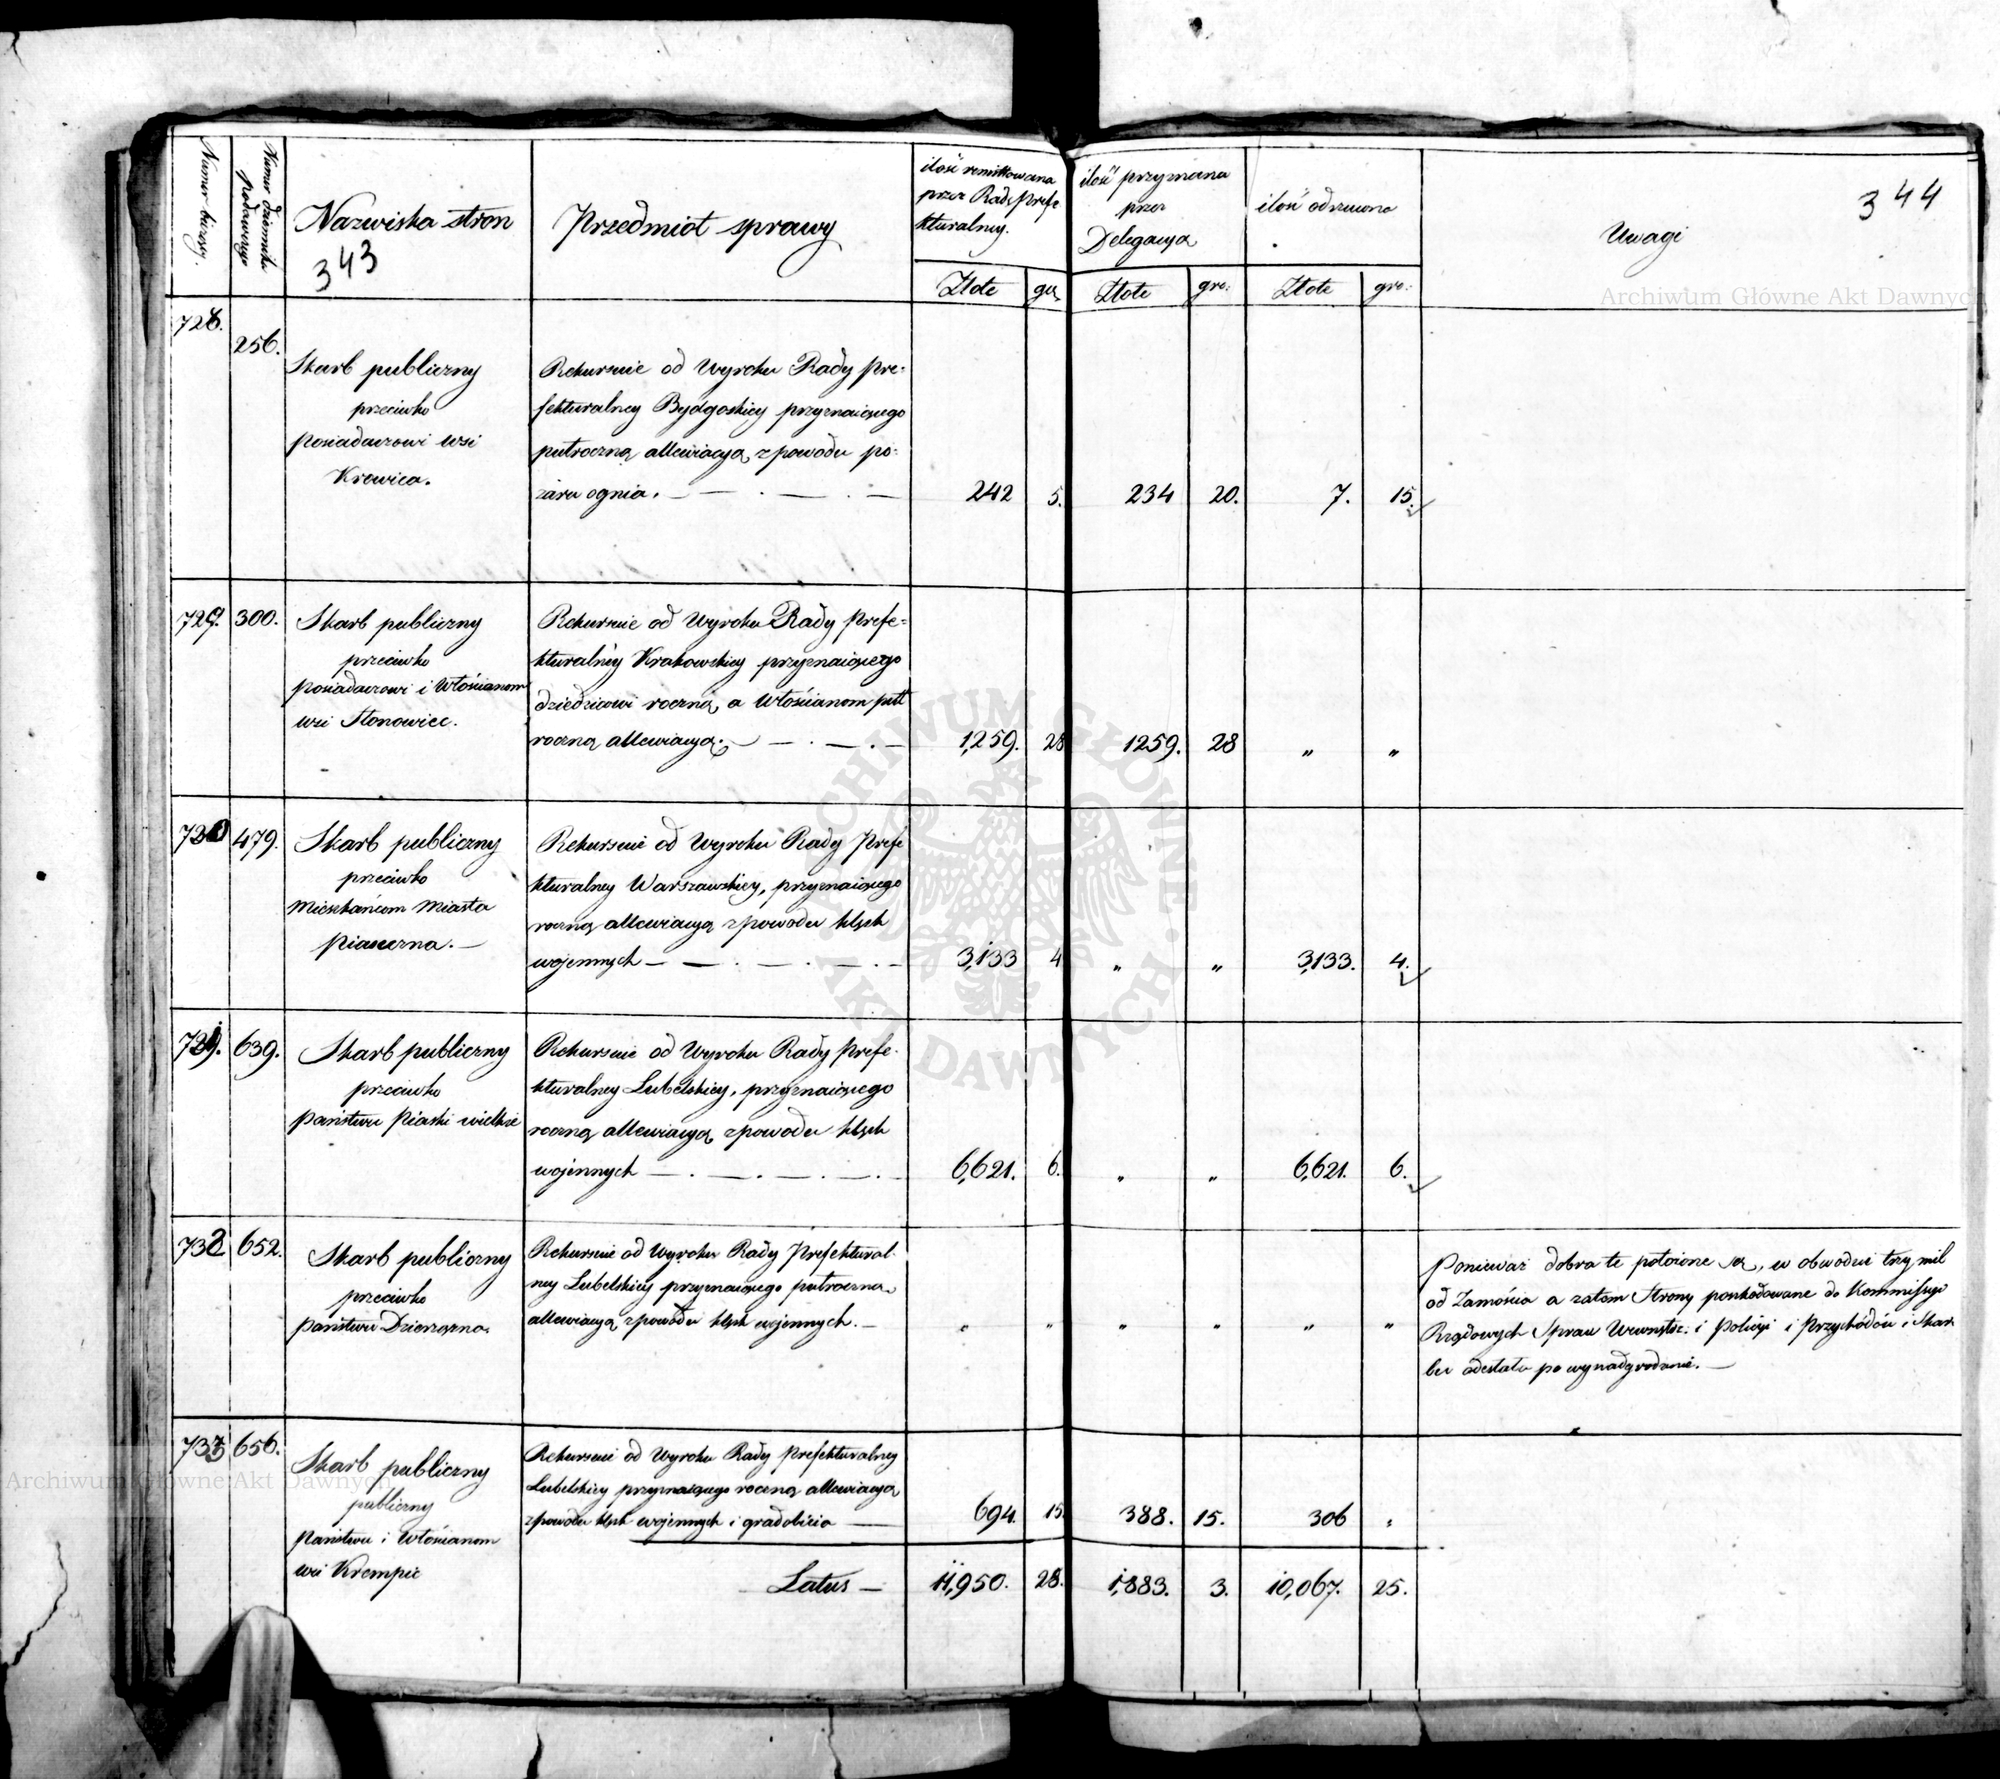 Numer bieżący.
Numer dziennika podawczego
Nazwiska stron
343
Przedmiot sprawy
ilość
przez Radę Prefe
kturalney.
ilość przyznana
przez
Delegacyą
ilość odrzucona
Uwagi
344
Złote gr.
Złote gro:
Złote gro:
Archiwum Główne Akt Dawnych
728.
256.
Skarb publiczny
przeciwko
posiadaczowi wsi
Krowica.
Rekursuie od Wyroku Rady Pre=
fekturalney Bydgoskiey przyznaiącego
putroczną allewiacyą z powodu po=
żaru ognia.
242 5. 234 20. 7. 15.
729. 300.
Skarb publiczny
przeciwko
posiadaczowi i Włościanom
wsi Stonowiec.
Rekursuie od Wyroku Rady Prefe=
kturalney Krakowskiey przyznaiącego
dziedzicowi roczną a Włościanom puł
roczną allewiacyą.
1,259. 28 1259. 28 " "
479.
Skarb publiczny
przeciwko
Mieszkańcom Miasta
Piaseczna.
Rekursuie od Wyroku Rady Prefe
kturalney Warszawskiey, przyznaiącego
roczną allewiacyą z powodu klęsk
wojennych
3,133 4 " " 3,133. 4.
639.
Skarb publiczny
przeciwko
Państwu Piaski wielkie
Rekursuie od Wyroku Rady Prefe-
kturalney Lubelskiey, przyznaiącego
roczną allewiacyą z powodu klęsk
wojennych
6,621. 6. " " 6,621. 6.
732 652.
Skarb publiczny
przeciwko
Państwu Dzierążna.
Rekursuie od Wyroku Rady Prefektural-
ney Lubelskiey przyznaiącego putroczną
allewiacyą z powodu klęsk wojennych.
" " " " " "
Ponieważ dobra te położone są, w obwodzie trzy mil
od Zamościa a zatem Strony poszkodowane do Kommissyi
Rządowych Spraw Wewnętrz: i Policyi i Przychodów i Skar
bu odesłała po wynadgrodzenie.
733 656.
Skarb publiczny
publiczny
Państwu i Włościanom
wsi Krempie
Rekursuie od Wyroku Rady Prefekturalney
Lubelskiey przyznaiącego roczną allewiacyą
z powodu klęsk wojennych i gradobicia
694. 15. 388. 15. 306 "
Latus — 11,950. 28. 1,883. 3. 10,067. 25.
Archiwum Główne Akt Dawnych
ARCHIWUM GŁÓWNE AKT DAWNYCH